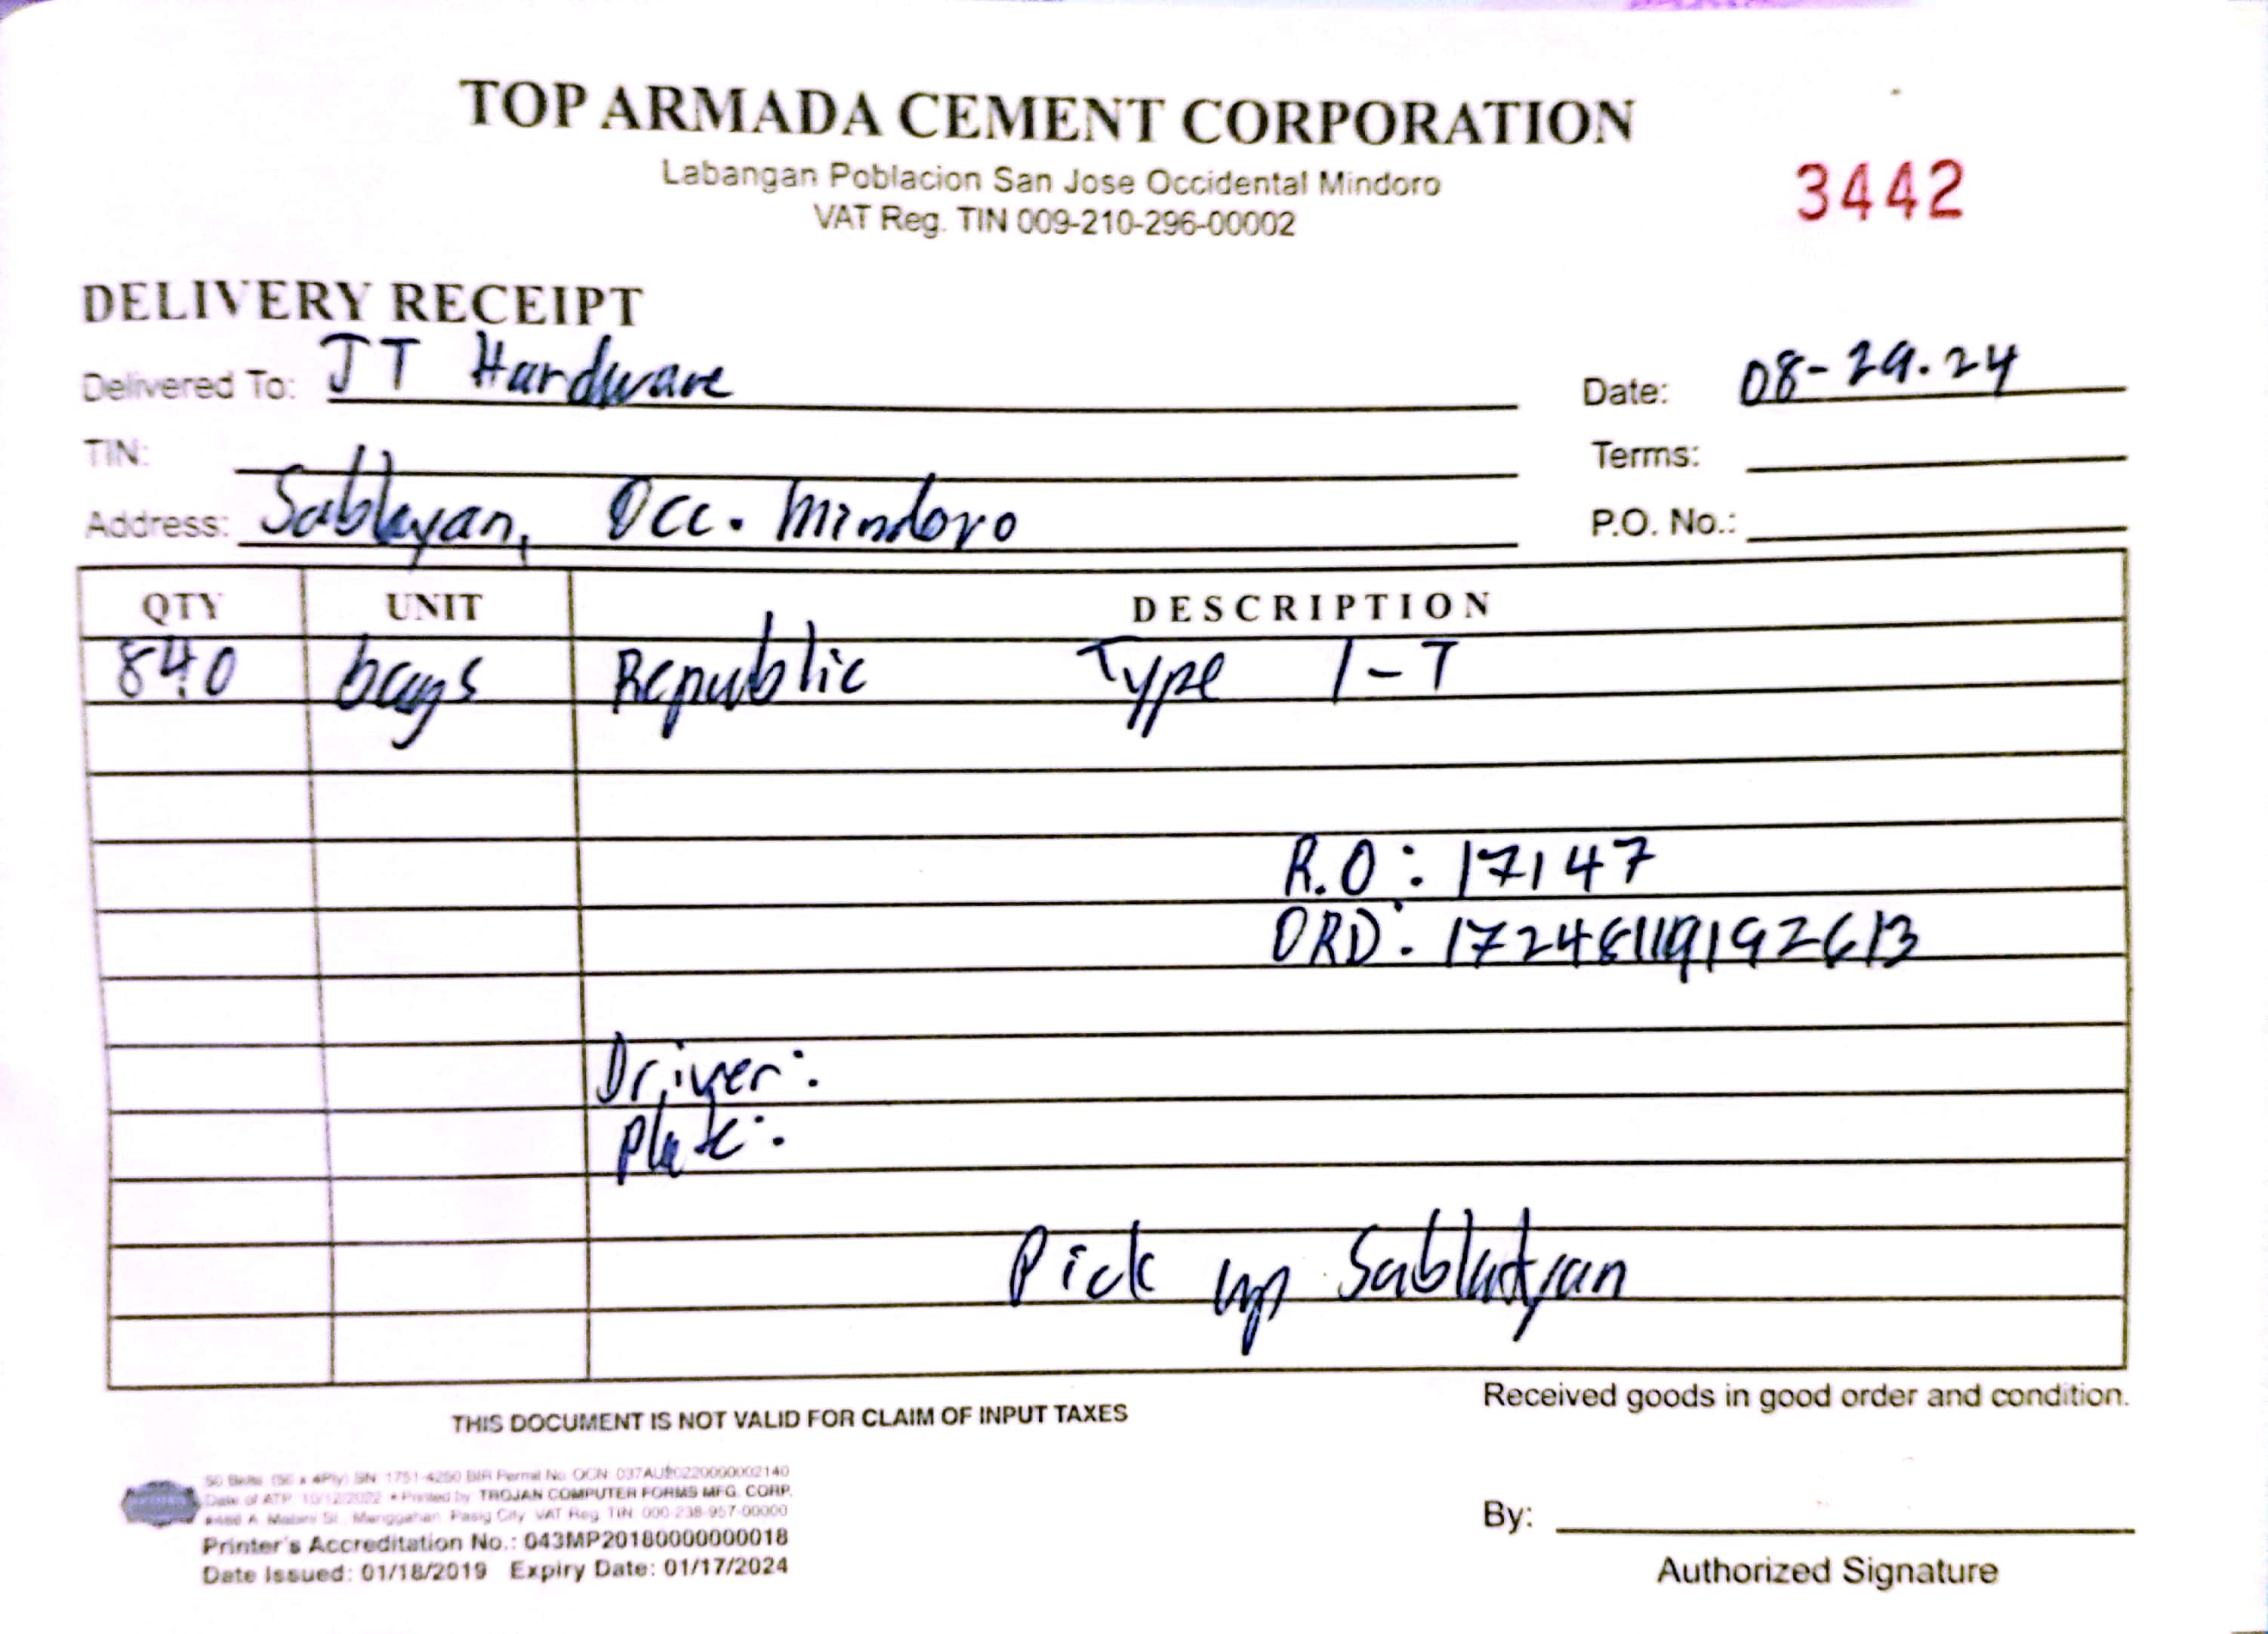 TOP ARMADA CEMENT CORPORATION
Labangan Poblacion San Jose Occidental Mindoro
VAT Reg. TIN 009-210-296-00002
3442
DELIVERY RECEIPT
Delivered To: JT Hardware
Date: 08-29.24
TIN:
Terms:
Address: Sablayan, Occ. Mindoro
P.O. No.:
QTY UNIT DESCRIPTION
840 bags Republic Type 1-T
R.O: 17147
ORD: 17248119192613
Driver:
Plate:
Pick up Sablayan
THIS DOCUMENT IS NOT VALID FOR CLAIM OF INPUT TAXES
Received goods in good order and condition.
50 Bklts. (50 x 4Ply) SN: 1751-4250 BIR Permit No. OCN: 037AU20220000002140
Date of ATP: 10/12/2022 • Printed by: TROJAN COMPUTER FORMS MFG. CORP.
A. Mabini St., Manggahan, Pasig City VAT Reg. TIN: 000-238-957-00000
Printer's Accreditation No.: 043MP20180000000018
Date Issued: 01/18/2019 Expiry Date: 01/17/2024
By:
Authorized Signature